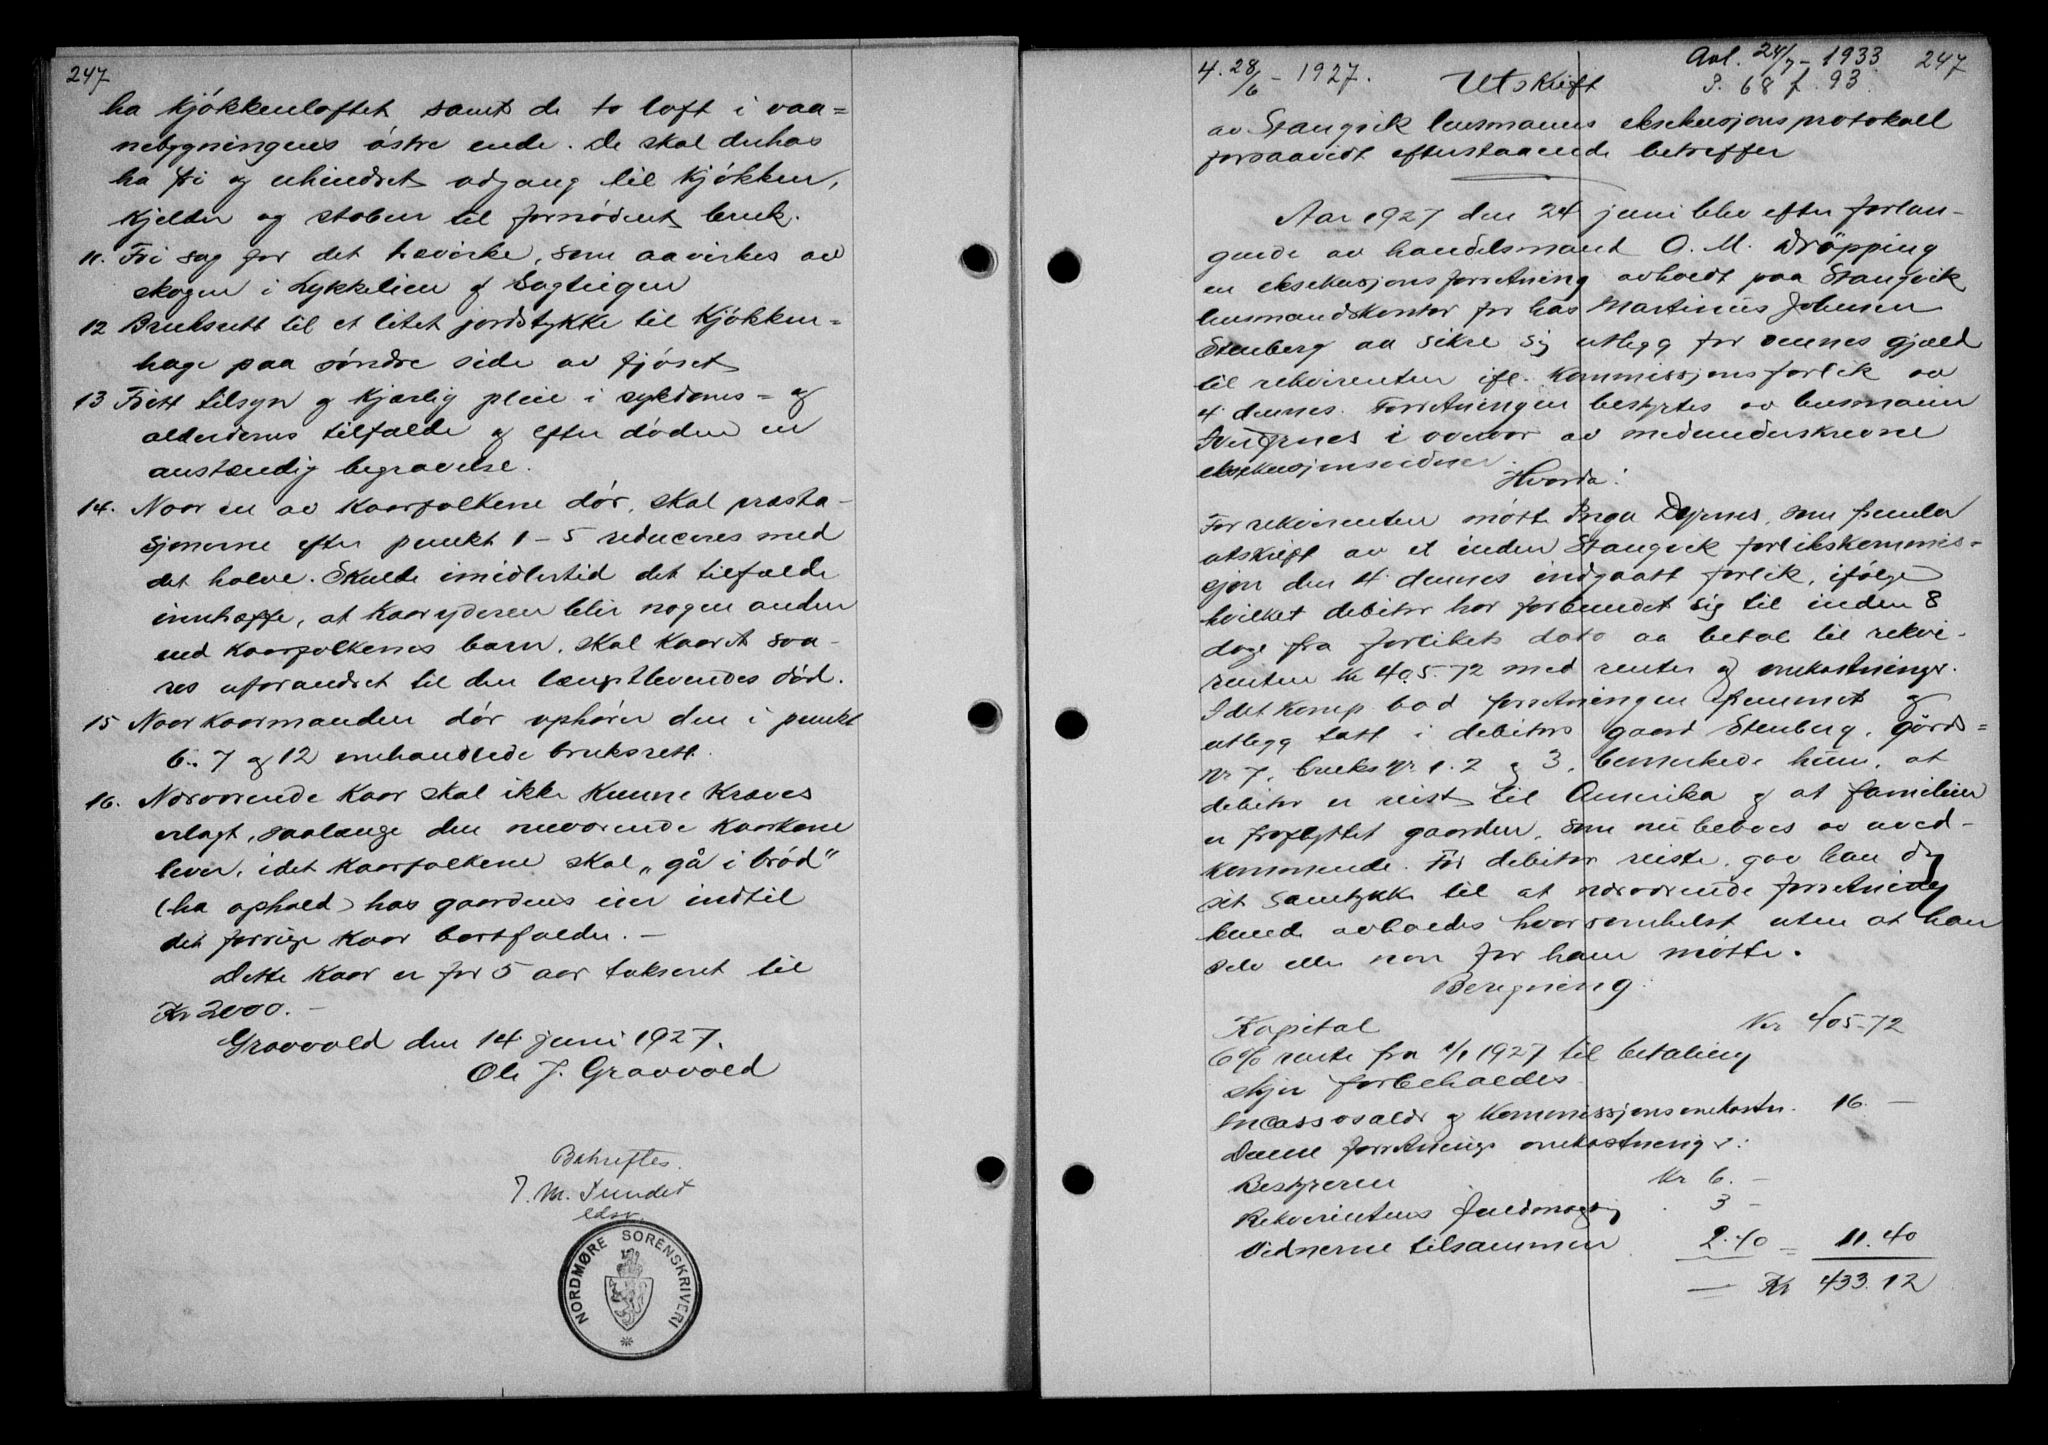 247
ha kjøkkenloftet samt de to loft i vaa=
nebygningens østre ende. De skal derhos
ha fri og uhindret adgang til kjøkken,
kjelder og stoben til fornødent bruk.
11. Fri sag for det trævirke, som aavirkes av
skogen i Lykkelien og Sagteigen
12 Bruksrett til et litet jordstykke til kjøkken=
hage paa søndre side av fjøset
13 Fritt tilsyn og kjærlig pleie i sykdoms- og
alderdoms tilfælde og efter døden en
anstændig begravelse.
14. Naar en av kaarfolkene dør, skal præsta-
sjonerne efter punkt 1-5 reduceres med
det halve. Skulde imidlertid det tilfælde
inntræffe, at kaaryderen blir nogen anden
end kaarfolkenes barn, skal kaaret sva-
res uforandret til den længstlevendes død.
15 Naar kaarmanden dør ophører den i punkt
6. 7 og 12 omhandlede bruksrett.
16. Nærværende kaar skal ikke kunne kræves
erlagt, saalænge den nuværende kaarkone
lever, idet kaarfolkene skal „gå i brød"
(ha ophold) hos gaardens eier indtil
det forrige kaar bortfalder. —
Dette kaar er for 5 aar taksert til
Kr 2000. —
Gravvold den 14 juni 1927.
Ole J. Gravvold
Bekreftes.
J. M. Sundet
edsv.
NORDMØRE SORENSKRIVERI
4. 28/6 - 1927.
Avl. 24/7 - 1933
P. 68 f. 93.
247
Utskrift
av Stangvik lensmanns eksekusjonsprotokoll
forsaavidt efterstaaende betreffer
Aar 1927 den 24 juni blev efter forlan-
gende av handelsmand O. M. Drøpping
en eksekusjonsforretning avholdt paa Stangvik
lensmandskontor for hos Martinus Johnsen
Stenberg aa sikre sig utlegg for dennes gjæld
til rekvirenten ifl. kommissjonsforlik av
4 dennes. Forretningen bestyrtes av lensmann
i overvær av medunderskrevne
eksekusjonsvidner.
Hvorda:
For rekvirenten møtte Inga Dyrnes, som fremla
utskrift av et inden Stangvik forlikskommis=
sjon den 4 dennes indgaatt forlik, ifølge
hvilket debitor har forbundet sig til inden 8
dage fra forlikets dato aa betal til rekvi-
renten kr 405.72 med renter og omkostninger.
I det komp. bad forretningen fremmet og
utlegg tatt i debitors gaard Stenberg, gårds=
nr 7, bruks nr 1. 2 og 3, bemerkede hun, at
debitor er reist til Amerika og at familien
er fraflyttet gaarden, som nu beboes av uved-
kommende. Før debitor reiste, gav han og
sit samtykke til at nærværende forretning
kunde avholdes hvorsomhelst uten at han
selv eller noen for ham møtte.
Beregning:
Kapital Kr 405-72
6% rente fra 1/1 1927 til betaling
skjer forbeholdes
Incassosalær og kommissjonsomkostn. 16. —
Denne forretnings omkostninger:
Bestyreren Kr 6. —
Rekvirentens fuldmægtig . 3 —
Vidnerne tilsammen 2.40 = 11.40
— Kr 433.12